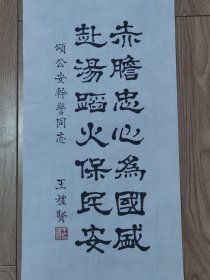 赤膽忠心為國盛
赴湯蹈火保民安
頌公安幹警同志
王禮賢